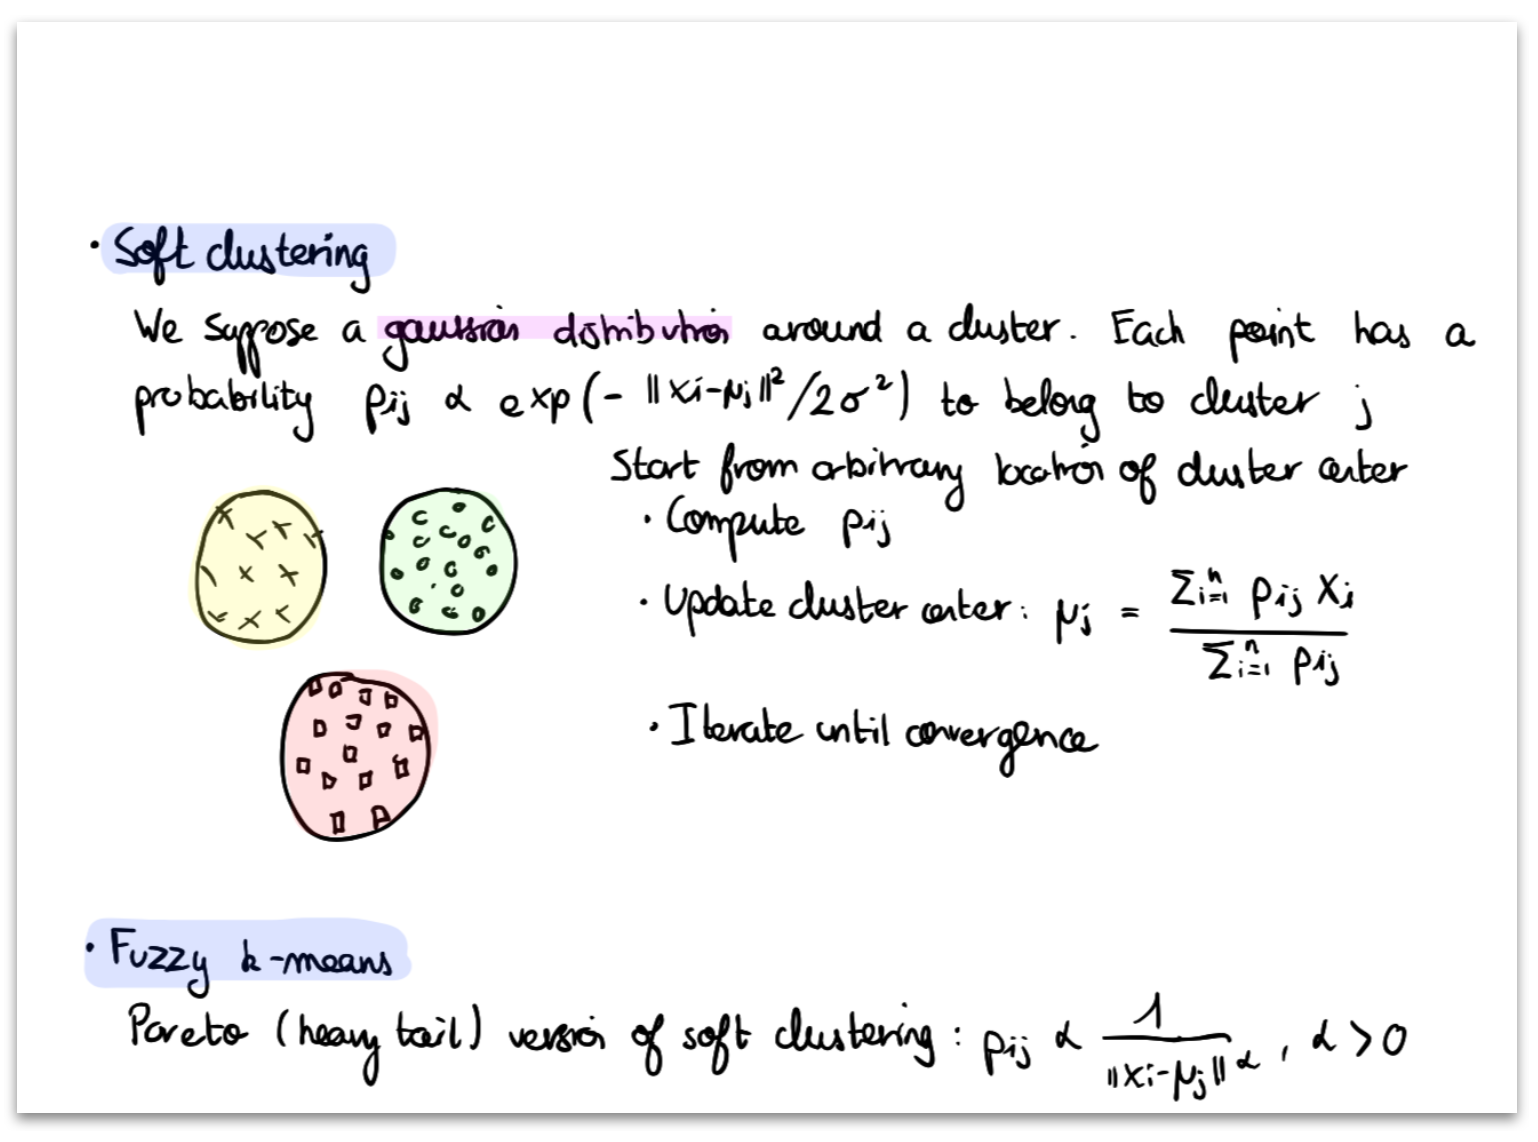 · Soft clustering
We suppose a gaussian distribution around a cluster. Each point has a
probability pij ∝ exp(- ||xi-μj||²/2σ²) to belong to cluster j
Start from arbitrary location of cluster center
· Compute pij
· Update cluster center: μj = Σi=1^n pij Xi / Σi=1^n pij
· Iterate until convergence
· Fuzzy k-means
Pareto (heavy tail) version of soft clustering: pij ∝ 1 / ||xi-μj||^α, α > 0